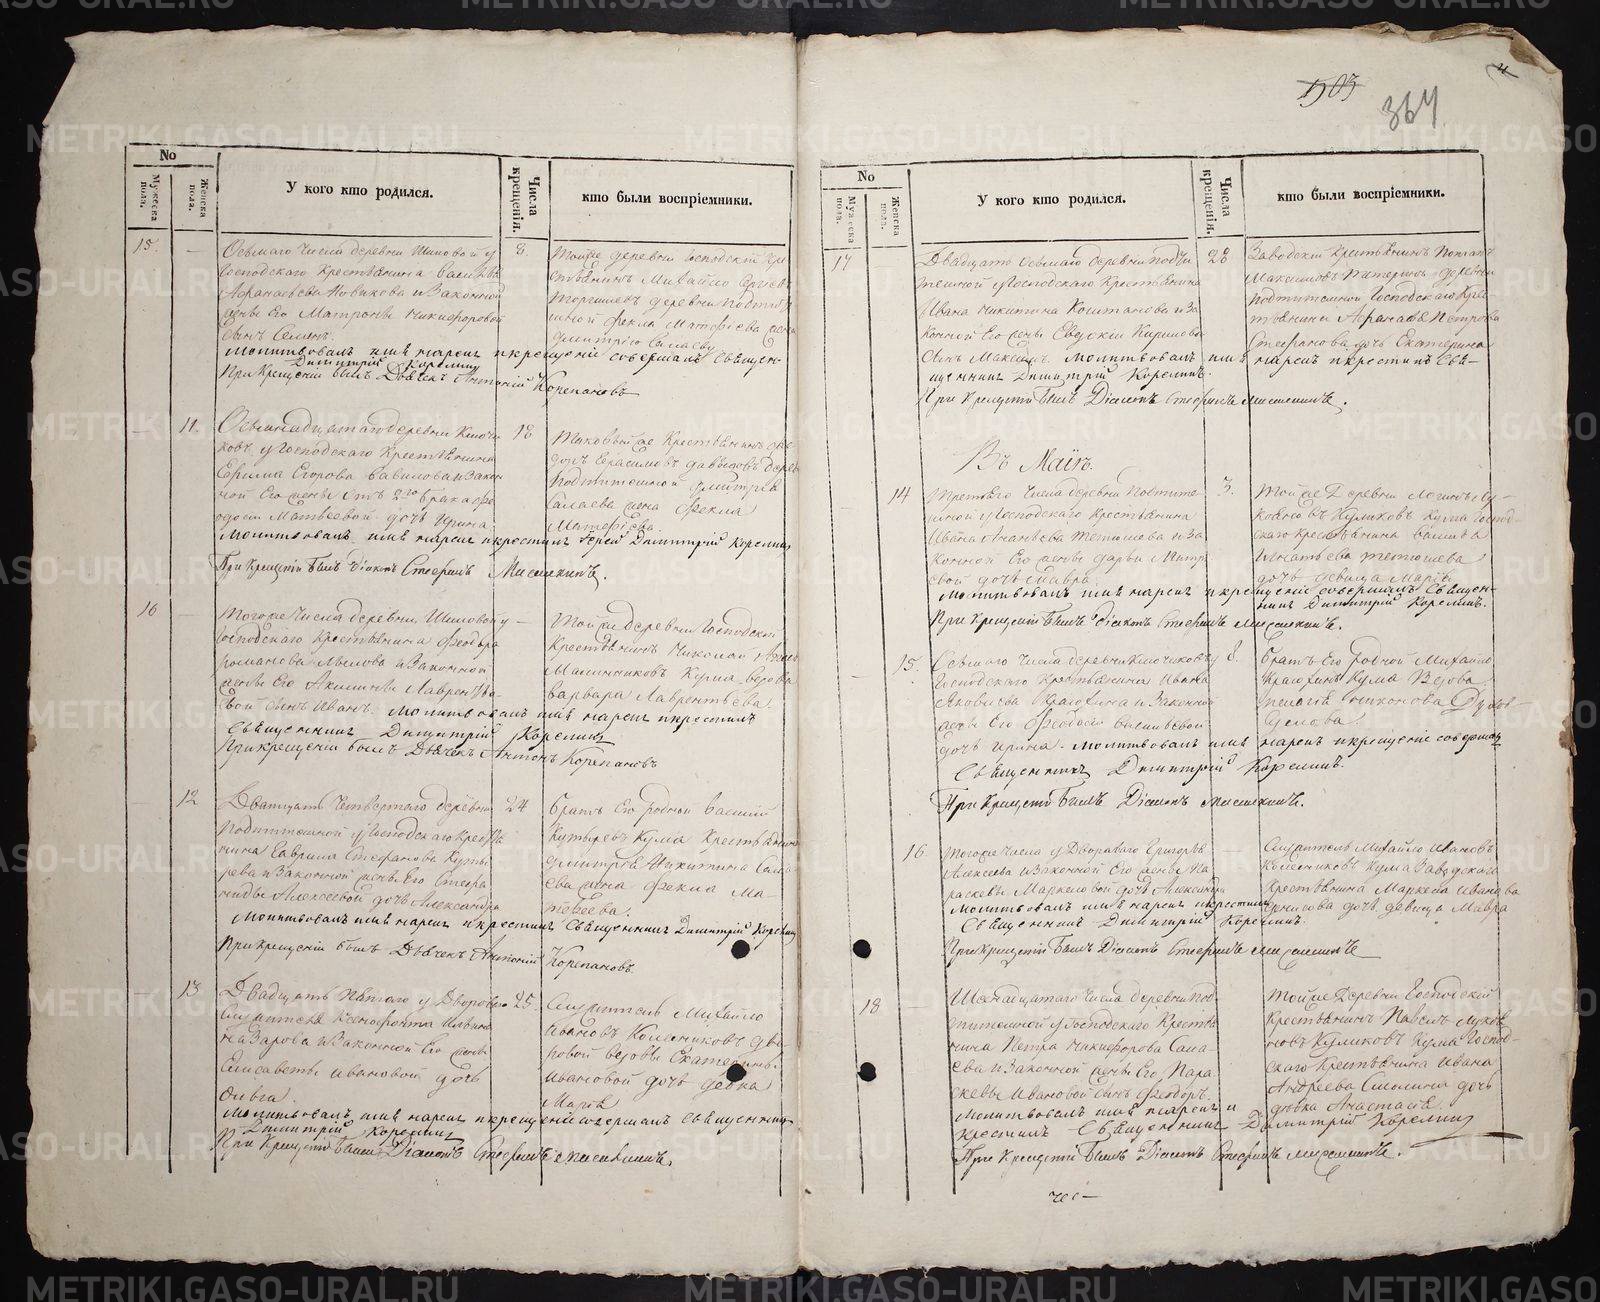 1903
364
4
No
Мужеска пола.
Женска пола.
У кого кто родился.
Числа крещенія.
кто были воспріемники.
15
Осьмаго числа деревни Шиловой у
Господскаго Крестьянина Василья
Афанасьева Новикова и Законной
жены Его Матроны Никифоровой
сынъ Семенъ.
Молитвовалъ имя нарекъ и крещеніе совершалъ Священ-
Димитрій Корелинъ
При Крещеніи былъ Дьячекъ Антоній Корепановъ
8.
Тойже деревни Господскій Кре
стьянинъ Михайло
деревни Подтите
шной Фекла Матфіева жена
Дмитрію Салаеву
11.
Осьмнадцатаго деревни Ключи
ковъ у Господскаго Крестьянина
Ефима Егорова Вавилова и Закон
ной Его жены отъ 2го брака Фе
одосіи Матвеевой дочь Ирина.
Молитвовалъ имя нарекъ и крестилъ Іерей Димитрій Корелинъ
При Крещеніи былъ Діаконъ Стефанъ Мисилкинъ.
18
Таковой же Крестьянинъ Фе
доръ Герасимовъ Давыдовъ дерев
Подтитешной Дмитрія
Салаева жена Фекла
Матфіева.
16
Тогоже числа деревни Шиловой у
Господскаго Крестьянина Феодора
Романова Мылова и Законной
жены Его Акилины Лаврентье-
вой сынъ Иванъ. Молитвовалъ имя нарекъ и крестилъ
Священникъ Димитрій Корелинъ
При крещеніи былъ Дьячекъ Антонъ Корепановъ
Тойже деревни Господской
Крестьянинъ Николай
Малинниковъ Кума вдова
Варвара Лаврентьева
12
Дватцать Четвертаго деревни
Подтитешной у Господскаго Крестья
нина Гаврила Стефанова Куты
рева и Законной жены Его Стефа
ниды Алексеевой дочь Александра
Молитвовалъ имя нарекъ и крестилъ Священникъ Димитрій Корелинъ
При крещеніи былъ Дьячекъ Антоній Корепановъ.
24
Братъ Его родной Василій
Кутыревъ Кума Крестьянина
Дмитрія Никитина Сала
ева жена Фекла Ма-
тфеева.
13
Двадцать пятаго у Двороваго
Служителя Ксенофонта Ильина
Назарова и Законной Его жены
Елисаветы Ивановой дочь
Ольга.
Молитвовалъ имя нарекъ и крещеніе совершалъ Священникъ
Димитрій Корелинъ
При Крещеніи былъ Діаконъ Стефанъ Мисилкинъ.
25.
Служитель Михайло
Ивановъ Колесниковъ дво
ровой вдовы Екатерины
Ивановой дочь девка
Марія
No
Мужеска пола.
Женска пола.
У кого кто родился.
Числа крещенія.
кто были воспріемники.
17
Двадцать осьмаго деревни Подти
тешной у Господскаго Крестьянина
Ивана Никитина Коштанова и За
конной Его жены Евдокіи Кириловой
сынъ Максимъ. Молитвовалъ имя нарекъ и крестилъ Свя-
щенникъ Димитрій Корелинъ.
При Крещеніи былъ Діаконъ Стефанъ Мисилкинъ.
28
Заводскій Крестьянинъ Потапъ
Максимовъ деревни
Подтитешной Господскаго Крес
тьянина Афанасья Петрова
Стефанова дочь Екатерина
Въ Маіѣ.
14
Третьяго числа деревни Подтите
шной у Господскаго Крестьянина
Ивана Ананьева Тетюшева и За
конной Его жены Дарьи Митр
евой дочь Мавра.
Молитвовалъ имя нарекъ и крещеніе совершилъ Священ-
никъ Димитрій Корелинъ.
При Крещеніи былъ Діаконъ Стефанъ Мисилкинъ.
3.
Тойже Деревни Логинъ Лу-
кояновъ Куликовъ кума Господ-
скаго Крестьянина Василья
Игнатьева Тетюшева
дочь девица Марія
15.
Осьмаго числа деревни Ключиковъ у
Господскаго Крестьянина Ивана
Яковлева Храпухина и Законной
жены Его Феодосіи Васильевой
дочь Ирина. Молитвовалъ имя нарекъ и крещеніе совершилъ
Священникъ Димитрій Корелинъ.
При Крещеніи былъ Діаконъ Мисилкинъ.
8.
Братъ Его родной Михайло
Кума Вдова
Пелагея Никонова
16
Тогоже числа у Двороваго Григорья
Алексеева и Законной Его жены Па
раскевы Маркеловой дочь Александра
Молитвовалъ имя нарекъ и крестилъ
Священникъ Димитрій Корелинъ.
При Крещеніи былъ Діаконъ Стефанъ Мисилкинъ
Служитель Михайло Ивановъ
Колесниковъ Кума Заводскаго
Крестьянина Маркела Иванова
дочь девица Мавра
18
Шестнадцатаго числа деревни Под
титешной у Господскаго Крестья
нина Петра Никифорова Сала-
ева и Законной жены Его Пара
скевы Ивановой сынъ Феодоръ.
Молитвовалъ имя нарекъ и
крестилъ Священникъ Димитрій Корелинъ
При Крещеніи былъ Діаконъ Стефанъ Мисилкинъ.
Тойже Деревни Господскій
Крестьянинъ Павелъ Лукоя
новъ Куликовъ Кума Господ-
скаго Крестьянина Ивана
Андреева Смолина дочь
девка Анастасія.
чес-
METRIKI.GASO-URAL.RU